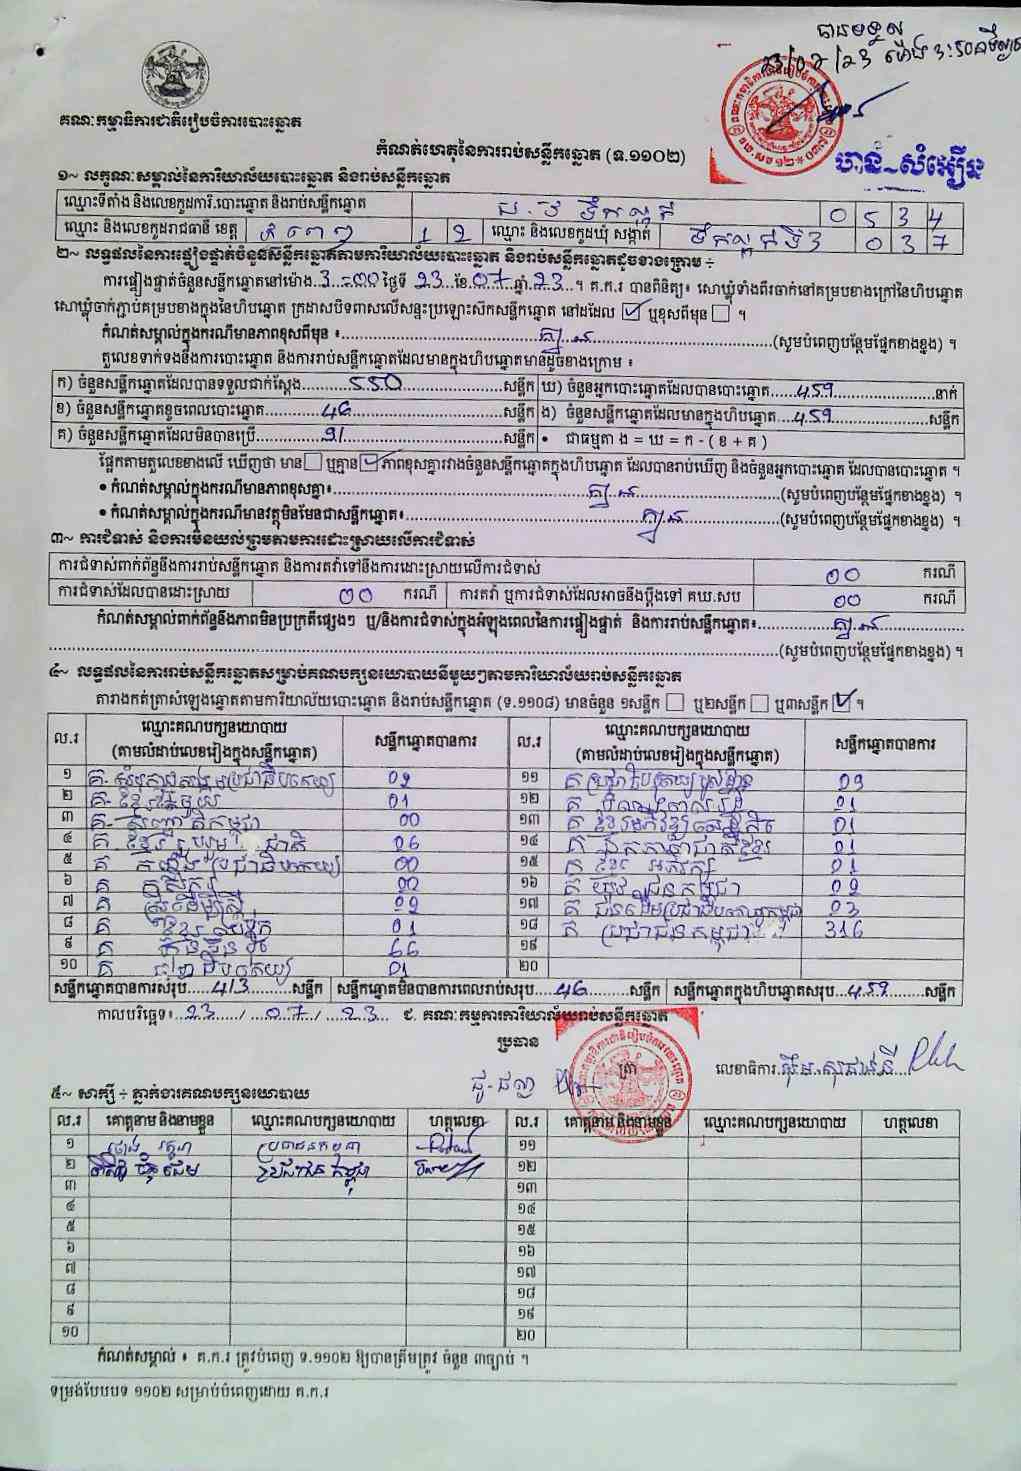 បានទទួល
23/07/23 ម៉ោង 3:50នាទីល្ងាច
គណៈកម្មាធិការជាតិរៀបចំការបោះឆ្នោត
បាន-សំអឿន
កំណត់ហេតុនៃការរាប់សន្លឹកឆ្នោត (ទ.១១០២)
១~ លក្ខណៈសម្គាល់នៃការិយាល័យបោះឆ្នោត និងរាប់សន្លឹកឆ្នោត
ឈ្មោះទីតាំង និងលេខកូដការិ.បោះឆ្នោត និងរាប់សន្លឹកឆ្នោត ប.វ ទឹកល្អក់ 0 5 3 4
ឈ្មោះ និងលេខកូដរាជធានី ខេត្ត ភ្នំពេញ 1 2 ឈ្មោះ និងលេខកូដឃុំ សង្កាត់ ទឹកល្អក់ទី3 0 3 7
២~ លទ្ធផលនៃការផ្ទៀងផ្ទាត់ចំនួនសន្លឹកឆ្នោតតាមការិយាល័យបោះឆ្នោត និងរាប់សន្លឹកឆ្នោតដូចខាងក្រោម ÷
ការផ្ទៀងផ្ទាត់ចំនួនសន្លឹកឆ្នោតនៅម៉ោង 3:00 ថ្ងៃទី 23 ខែ 07 ឆ្នាំ 23 ។ គ.ក.រ បានពិនិត្យ៖ សោឃ្លុំទាំងពីរចាក់នៅគម្របខាងក្រៅនៃហិបឆ្នោត
សោឃ្លុំចាក់ភ្ជាប់គម្របខាងក្នុងនៃហិបឆ្នោត ក្រដាសបិទពាសលើសន្ទះប្រឡោះស៊កសន្លឹកឆ្នោត នៅដដែល ☑ ឬខុសពីមុន ☐ ។
កំណត់សម្គាល់ក្នុងករណីមានភាពខុសពីមុន ៖ គ្មាន (សូមបំពេញបន្ថែមផ្នែកខាងខ្នង) ។
តួលេខទាក់ទងនឹងការបោះឆ្នោត និងការរាប់សន្លឹកឆ្នោតដែលមានក្នុងហិបឆ្នោតមានដូចខាងក្រោម ៖
ក) ចំនួនសន្លឹកឆ្នោតដែលបានទទួលជាក់ស្តែង 550 សន្លឹក ឃ) ចំនួនអ្នកបោះឆ្នោតដែលបានបោះឆ្នោត 459 នាក់
ខ) ចំនួនសន្លឹកឆ្នោតខូចពេលបោះឆ្នោត សន្លឹក ង) ចំនួនសន្លឹកឆ្នោតដែលមានក្នុងហិបឆ្នោត 459 សន្លឹក
គ) ចំនួនសន្លឹកឆ្នោតដែលមិនបានប្រើ 91 សន្លឹក • ជាធម្មតា ង = ឃ = ក - ( ខ + គ )
ផ្អែកតាមតួលេខខាងលើ ឃើញថា មាន ☐ ឬគ្មាន ☑ ភាពខុសគ្នារវាងចំនួនសន្លឹកឆ្នោតក្នុងហិបឆ្នោត ដែលបានរាប់ឃើញ និងចំនួនអ្នកបោះឆ្នោត ដែលបានបោះឆ្នោត ។
• កំណត់សម្គាល់ក្នុងករណីមានភាពខុសគ្នា៖ គ្មាន (សូមបំពេញបន្ថែមផ្នែកខាងខ្នង) ។
• កំណត់សម្គាល់ក្នុងករណីមានវត្ថុមិនមែនជាសន្លឹកឆ្នោត៖ គ្មាន (សូមបំពេញបន្ថែមផ្នែកខាងខ្នង) ។
៣~ ការជំទាស់ និងការមិនយល់ព្រមតាមការដោះស្រាយលើការជំទាស់
ការជំទាស់ពាក់ព័ន្ធនឹងការរាប់សន្លឹកឆ្នោត និងការតវ៉ាទៅនឹងការដោះស្រាយលើការជំទាស់ 00 ករណី
ការជំទាស់ដែលបានដោះស្រាយ 00 ករណី ការតវ៉ា ឬការជំទាស់ដែលអាចនឹងប្តឹងទៅ គឃ.សប 00 ករណី
កំណត់សម្គាល់ពាក់ព័ន្ធនឹងភាពមិនប្រក្រតីផ្សេងៗ ឬ/និងការជំទាស់ក្នុងអំឡុងពេលនៃការផ្ទៀងផ្ទាត់ និងការរាប់សន្លឹកឆ្នោត៖ គ្មាន
(សូមបំពេញបន្ថែមផ្នែកខាងខ្នង) ។
៤~ លទ្ធផលនៃការរាប់សន្លឹកឆ្នោតសម្រាប់គណបក្សនយោបាយនីមួយៗតាមការិយាល័យរាប់សន្លឹកឆ្នោត
តារាងកត់ត្រាសំឡេងឆ្នោតតាមការិយាល័យបោះឆ្នោត និងរាប់សន្លឹកឆ្នោត (ទ.១១០៨) មានចំនួន ១សន្លឹក ☐ ឬ២សន្លឹក ☐ ឬ៣សន្លឹក ☑ ។
ល.រ ឈ្មោះគណបក្សនយោបាយ (តាមលំដាប់លេខរៀងក្នុងសន្លឹកឆ្នោត) សន្លឹកឆ្នោតបានការ ល.រ ឈ្មោះគណបក្សនយោបាយ (តាមលំដាប់លេខរៀងក្នុងសន្លឹកឆ្នោត) សន្លឹកឆ្នោតបានការ
១ គ. 02 ១១ គ ប្រជាធិបតេយ្យមូលដ្ឋាន 09
២ គ. ខ្មែរតែមួយ 01 ១២ គ 01
៣ គ. សញ្ជាតិកម្ពុជា 00 ១៣ គ ខ្មែរអភិវឌ្ឍន៍សេដ្ឋកិច្ច 01
៤ គ ខ្មែររួបរួមជាតិ 06 ១៤ គ ឯកភាពជាតិខ្មែរ 01
៥ គ កម្លាំងប្រជាធិបតេយ្យ 00 ១៥ គ ខ្មែរ អភិរក្ស 01
៦ គ កសិករ 00 ១៦ គ យុវជនកម្ពុជា 09
៧ គ ស្ត្រីដើម្បីស្ត្រី 02 ១៧ គ ជនដើមប្រជាធិបតេយ្យកម្ពុជា 03
៨ គ ខ្មែរ 01 ១៨ គ ប្រជាជនកម្ពុជា 316
៩ គ ហ៊្វុនស៊ិនប៉ិច 66 ១៩
១០ គ ធម្មាធិបតេយ្យ 01 ២០
សន្លឹកឆ្នោតបានការសរុប 413 សន្លឹក សន្លឹកឆ្នោតមិនបានការពេលរាប់សរុប 46 សន្លឹក សន្លឹកឆ្នោតក្នុងហិបឆ្នោតសរុប 459 សន្លឹក
កាលបរិច្ឆេទ៖ 23 / 07 / 23 ៩. គណៈកម្មការការិយាល័យរាប់សន្លឹកឆ្នោត
ប្រធាន
ត្រា
លេខាធិការ
៥~ សាក្សី ÷ ភ្នាក់ងារគណបក្សនយោបាយ
ល.រ គោត្តនាម និងនាមខ្លួន ឈ្មោះគណបក្សនយោបាយ ហត្ថលេខា ល.រ គោត្តនាម និងនាមខ្លួន ឈ្មោះគណបក្សនយោបាយ ហត្ថលេខា
១ ប្រជាជនកម្ពុជា ១១
២ ប្រជាជនកម្ពុជា ១២
៣ ១៣
៤ ១៤
៥ ១៥
៦ ១៦
៧ ១៧
៨ ១៨
៩ ១៩
១០ ២០
កំណត់សម្គាល់ ៖ គ.ក.រ ត្រូវបំពេញ ទ.១១០២ ឱ្យបានត្រឹមត្រូវ ចំនួន ៣ច្បាប់ ។
ទម្រង់បែបបទ ១១០២ សម្រាប់បំពេញដោយ គ.ក.រ